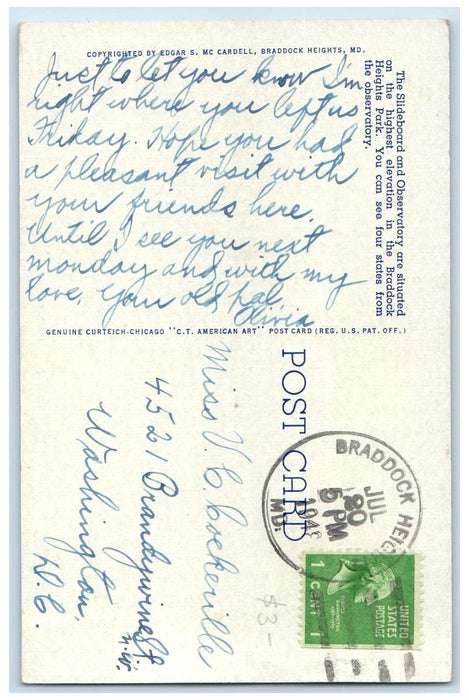 COPYRIGHTED BY EDGAR S. MC CARDELL, BRADDOCK HEIGHTS, MD.
Just to let you know I'm
right where you left us
Friday. Hope you had
a pleasant visit with
your friends here.
Until I see you next
monday and with my
love, your old pal,
Olivia
The Slideboard and Observatory are situated
on the highest elevation in the Braddock
Heights Park. You can see four states from
the observatory.
GENUINE CURTEICH-CHICAGO "C.T. AMERICAN ART" POST CARD (REG. U.S. PAT. OFF.)
POST CARD
Miss V. C. Cockerille
4521 Brandywine St
N.W.
Washington,
D.C.
BRADDOCK HEIG
JUL
20
5 PM
MD.
UNITED
STATES
POSTAGE
1 CENT 1
$3-